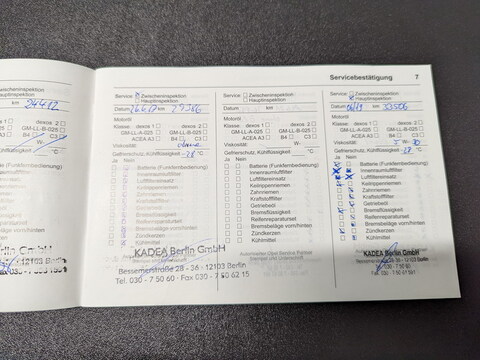 Servicebestätigung 7
km 24412
C3
(Funkfernbedienung)
Berlin GmbH
- 12103 Berlin
Service: Zwischeninspektion
Hauptinspektion
Datum km
Motoröl
Klasse: dexos 1 dexos 2
GM-LL-A-025 GM-LL-B-025
ACEA A3 B4 C3
Viskosität: W-
Gefrierschutz, Kühlflüssigkeit -28 °C
Ja Nein
Batterie (Funkfernbedienung)
Innenraumluftfilter
Luftfiltereinsatz
Keilrippenriemen
Zahnriemen
Kraftstofffilter
Getriebeöl
Bremsflüssigkeit
Reifenreparaturset
Bremsbeläge vorn/hinten
Zündkerzen
Kühlmittel
KADEA Berlin GmbH
Bessemerstraße 28 - 36 - 12103 Berlin
Tel. 030 - 7 50 60 - Fax 030 - 7 50 62 15
Service: Zwischeninspektion
Hauptinspektion
Datum km
Motoröl
Klasse: dexos 1 dexos 2
GM-LL-A-025 GM-LL-B-025
ACEA A3 B4 C3
Viskosität: W-
Gefrierschutz, Kühlflüssigkeit °C
Ja Nein
Batterie (Funkfernbedienung)
Innenraumluftfilter
Luftfiltereinsatz
Keilrippenriemen
Zahnriemen
Kraftstofffilter
Getriebeöl
Bremsflüssigkeit
Reifenreparaturset
Bremsbeläge vorn/hinten
Zündkerzen
Kühlmittel
Autorisierter Opel Service Partner
Stempel und Unterschrift
Service: Zwischeninspektion
Hauptinspektion
Datum km 33506
Motoröl
Klasse: dexos 1 dexos 2
GM-LL-A-025 GM-LL-B-025
ACEA A3 B4 C3
Viskosität: W- 30
Gefrierschutz, Kühlflüssigkeit -28 °C
Ja Nein
Batterie (Funkfernbedienung)
Innenraumluftfilter
Luftfiltereinsatz
Keilrippenriemen
Zahnriemen
Kraftstofffilter
Getriebeöl
Bremsflüssigkeit
Reifenreparaturset
Bremsbeläge vorn/hinten
Zündkerzen
Kühlmittel
KADEA Berlin GmbH